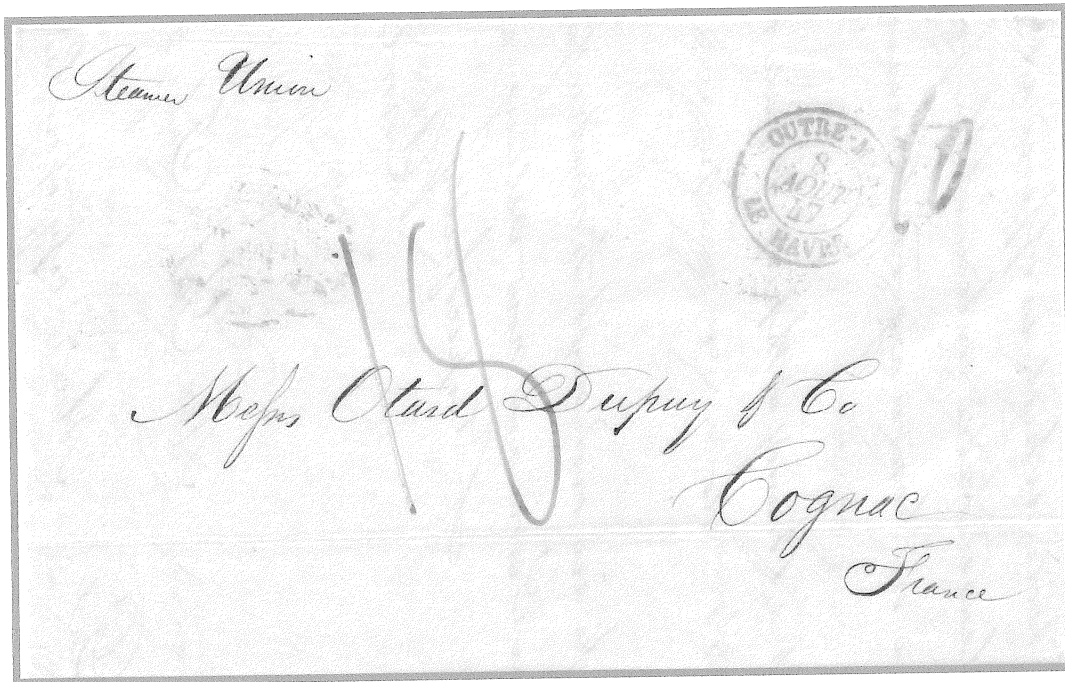 Steamer Union
OUTRE-M
8
AOUT
47
LE HAVRE
10
14
Messrs Otard Dupuy & Co
Cognac
France